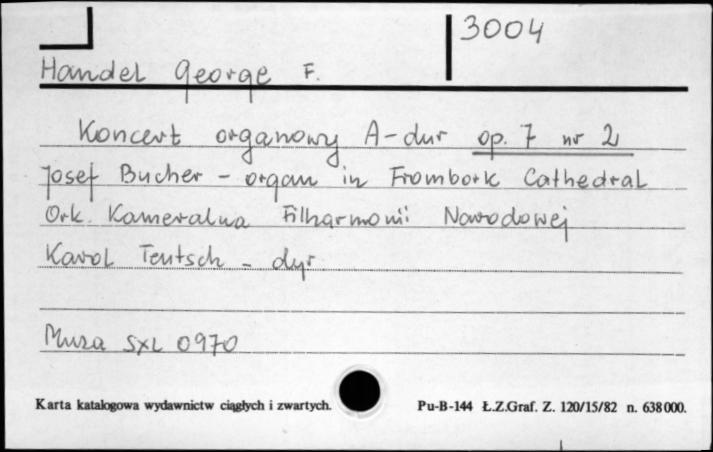 3004
Handel George F.
Koncert organowy A-dur op. 7 nr 2
Josef Bucher - organ in Frombork Cathedral
Ork. Kameralna Filharmonii Narodowej
Karol Teutsch - dyr
Muza SXL 0970
Karta katalogowa wydawnictw ciągłych i zwartych. Pu-B-144 Ł.Z.Graf. Z. 120/15/82 n. 638000.